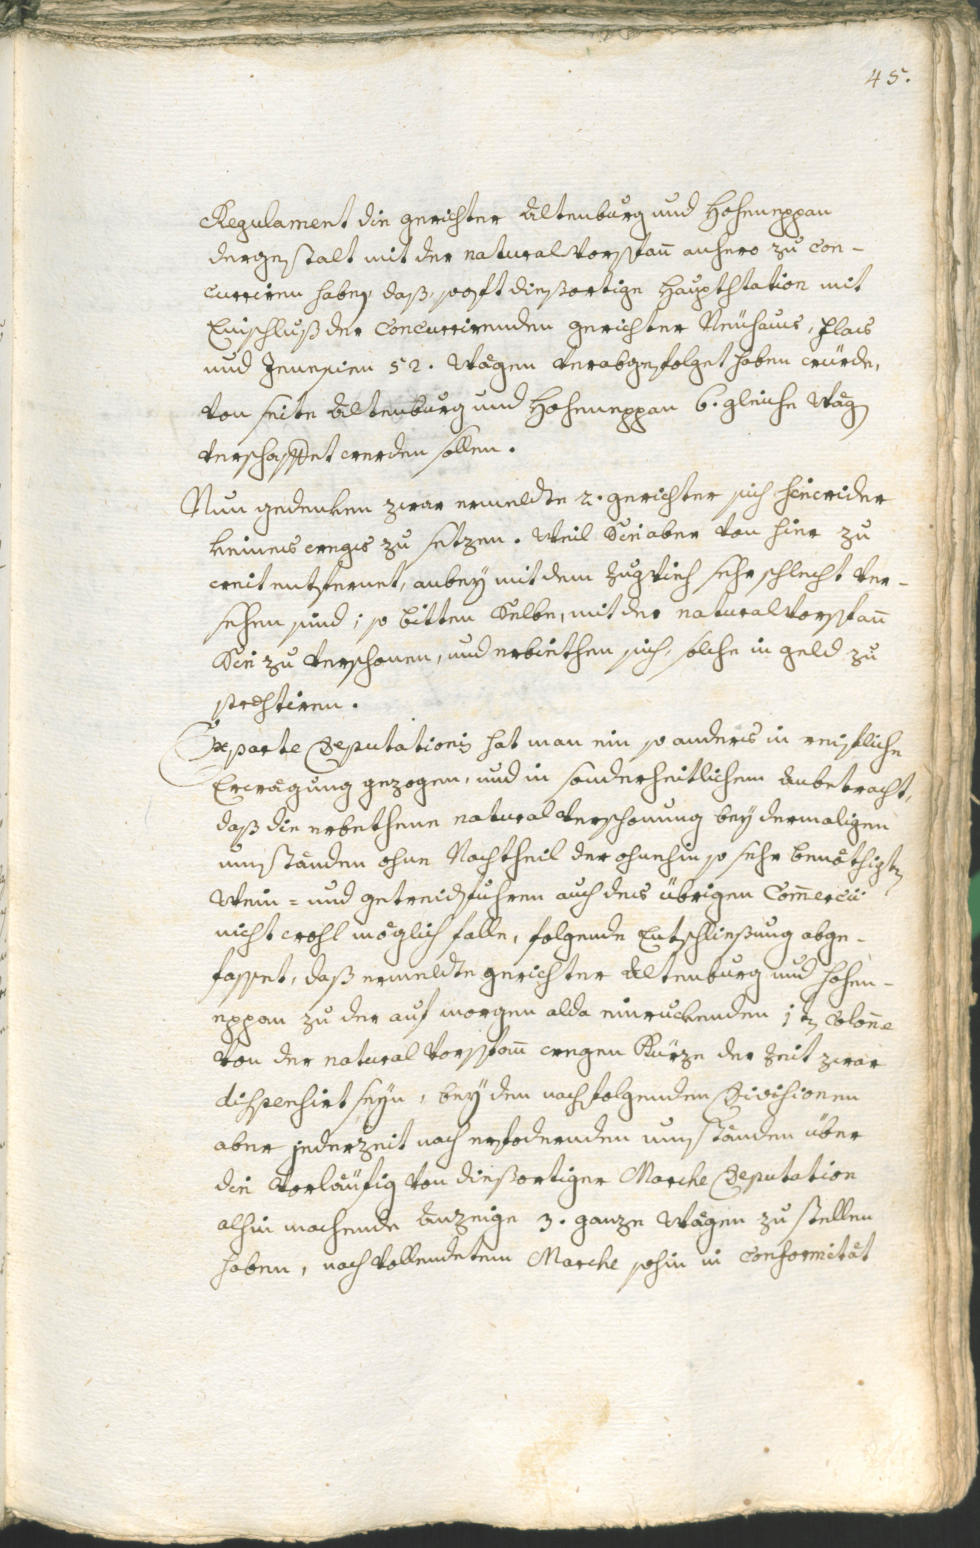 45.
Regulament die gerichter Altenburg und Hoheneppan
dergestalt mit der natural Vorspañ anhero zu con-
curriren haben, daß, so oft diesortige Haubtstation mit
Einschluß der Concurrirenden gerichter Neuhaus, Flaas
und Jenesien 52. Wägen verabgefolget haben würde,
von seite Altenburg und Hoheneppan 6. gleiche Wäg
verschaffet werden sollen.
Nun gedenken zwar ermeldte 2. gerichter sich hinwider
keines wegs zu setzen. Weil Sie aber von hier zu
weit entfernet, anbey mit dem Zugvieh sehr schlecht ver-
sehen sind; so bitten Selbe, mit der natural Vorspañ
Sie zu verschonen, und erbiethen sich, solche in geld zu
prestiren.
Ex parte Deputationis hat man ein so anders in reifliche
Erwägung gezogen, und in sonderheitlichem Anbetracht,
daß die erbethene natural Verschonung bey dermaligen
umständen ohne Nachtheil der ohnehin so sehr benöthigten
Wein- und getreidfuhren auch des übrigen Com̃ercii
nicht wohl möglich falle, folgende Entschließung abge-
fasset, daß ermeldte gerichter Altenburg und Hohen-
eppan zu der auf morgen alda einruckenden 1ten Coloñe
von der natural Vorspañ wegen Kürze der Zeit zwar
dispensirt seyn, bey den nachfolgenden Divisionen
aber jederzeit nach erfodernden umständen über
die Vorläufig von diesortiger Marche Deputation
alhin machende Anzeige 3. ganze Wägen zu stellen
haben, nach Vollendetem Marche sohin in Conformität